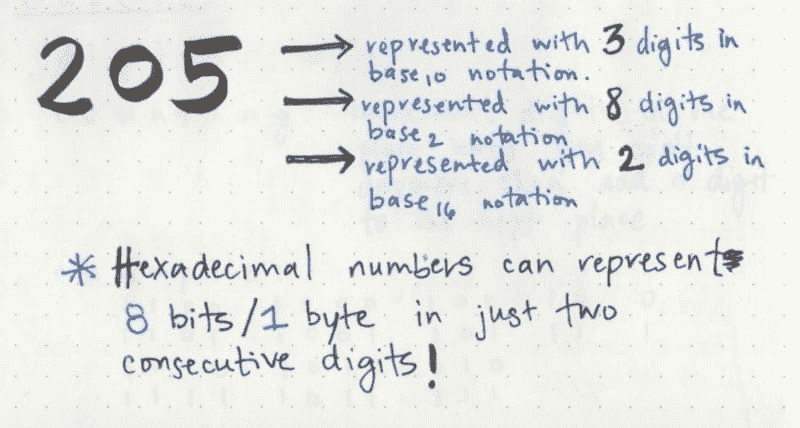 205 → represented with 3 digits in
base10 notation.
→ represented with 8 digits in
base2 notation
→ represented with 2 digits in
base16 notation
* Hexadecimal numbers can represent
8 bits/1 byte in just two
consecutive digits!